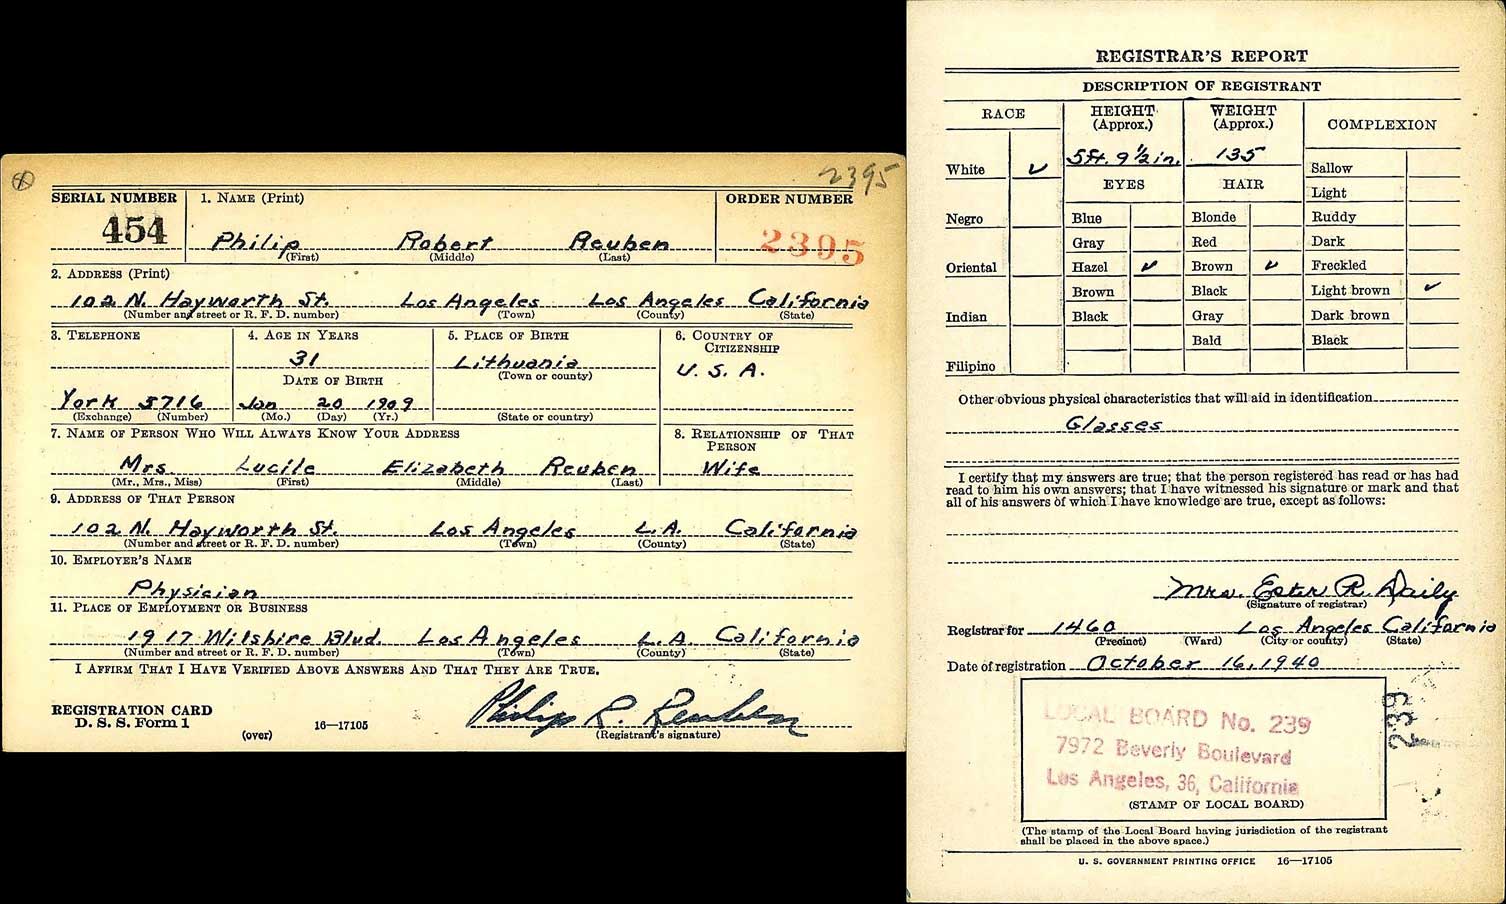 2395
SERIAL NUMBER 1. NAME (Print) ORDER NUMBER
454 Philip Robert Reuben 2395
(First) (Middle) (Last)
2. ADDRESS (Print)
102 N. Hayworth St. Los Angeles Los Angeles California
(Number and street or R. F. D. number) (Town) (County) (State)
3. TELEPHONE 4. AGE IN YEARS 5. PLACE OF BIRTH 6. COUNTRY OF CITIZENSHIP
31 Lithuania U. S. A.
DATE OF BIRTH (Town or county)
York 5716 Jan 20 1909
(Exchange) (Number) (Mo.) (Day) (Yr.) (State or country)
7. NAME OF PERSON WHO WILL ALWAYS KNOW YOUR ADDRESS 8. RELATIONSHIP OF THAT PERSON
Mrs Lucile Elizabeth Reuben Wife
(Mr., Mrs., Miss) (First) (Middle) (Last)
9. ADDRESS OF THAT PERSON
102 N. Hayworth St. Los Angeles L.A. California
(Number and street or R. F. D. number) (Town) (County) (State)
10. EMPLOYER'S NAME
Physician
11. PLACE OF EMPLOYMENT OR BUSINESS
1917 Wilshire Blvd. Los Angeles L.A. California
(Number and street or R. F. D. number) (Town) (County) (State)
I AFFIRM THAT I HAVE VERIFIED ABOVE ANSWERS AND THAT THEY ARE TRUE.
REGISTRATION CARD
D. S. S. Form 1 16—17105 Philip R. Reuben
(over) (Registrant's signature)
REGISTRAR'S REPORT
DESCRIPTION OF REGISTRANT
RACE HEIGHT (Approx.) WEIGHT (Approx.) COMPLEXION
White ✓ 5ft. 9 1/2 in. 135 Sallow
EYES HAIR Light
Negro Blue Blonde Ruddy
Gray Red Dark
Oriental Hazel ✓ Brown ✓ Freckled
Brown Black Light brown ✓
Indian Black Gray Dark brown
Bald Black
Filipino
Other obvious physical characteristics that will aid in identification
Glasses
I certify that my answers are true; that the person registered has read or has had
read to him his own answers; that I have witnessed his signature or mark and that
all of his answers of which I have knowledge are true, except as follows:
Mrs. Ester R. Daily
(Signature of registrar)
Registrar for 1460 Los Angeles California
(Precinct) (Ward) (City or county) (State)
Date of registration October 16, 1940
LOCAL BOARD No. 239
7972 Beverly Boulevard
Los Angeles, 36, California
(STAMP OF LOCAL BOARD)
239
(The stamp of the Local Board having jurisdiction of the registrant
shall be placed in the above space.)
U. S. GOVERNMENT PRINTING OFFICE 16—17105